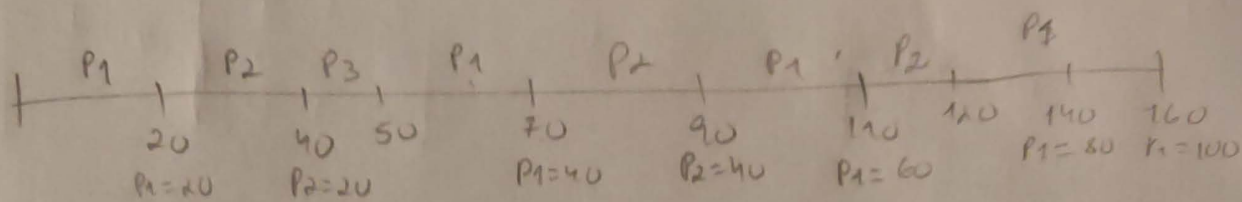 P1 P2 P3 P1 P2 P1 P2 P1
20 40 50 70 90 110 120 140 160
P1=20 P2=20 P1=40 P2=40 P1=60 P1=80 P1=100